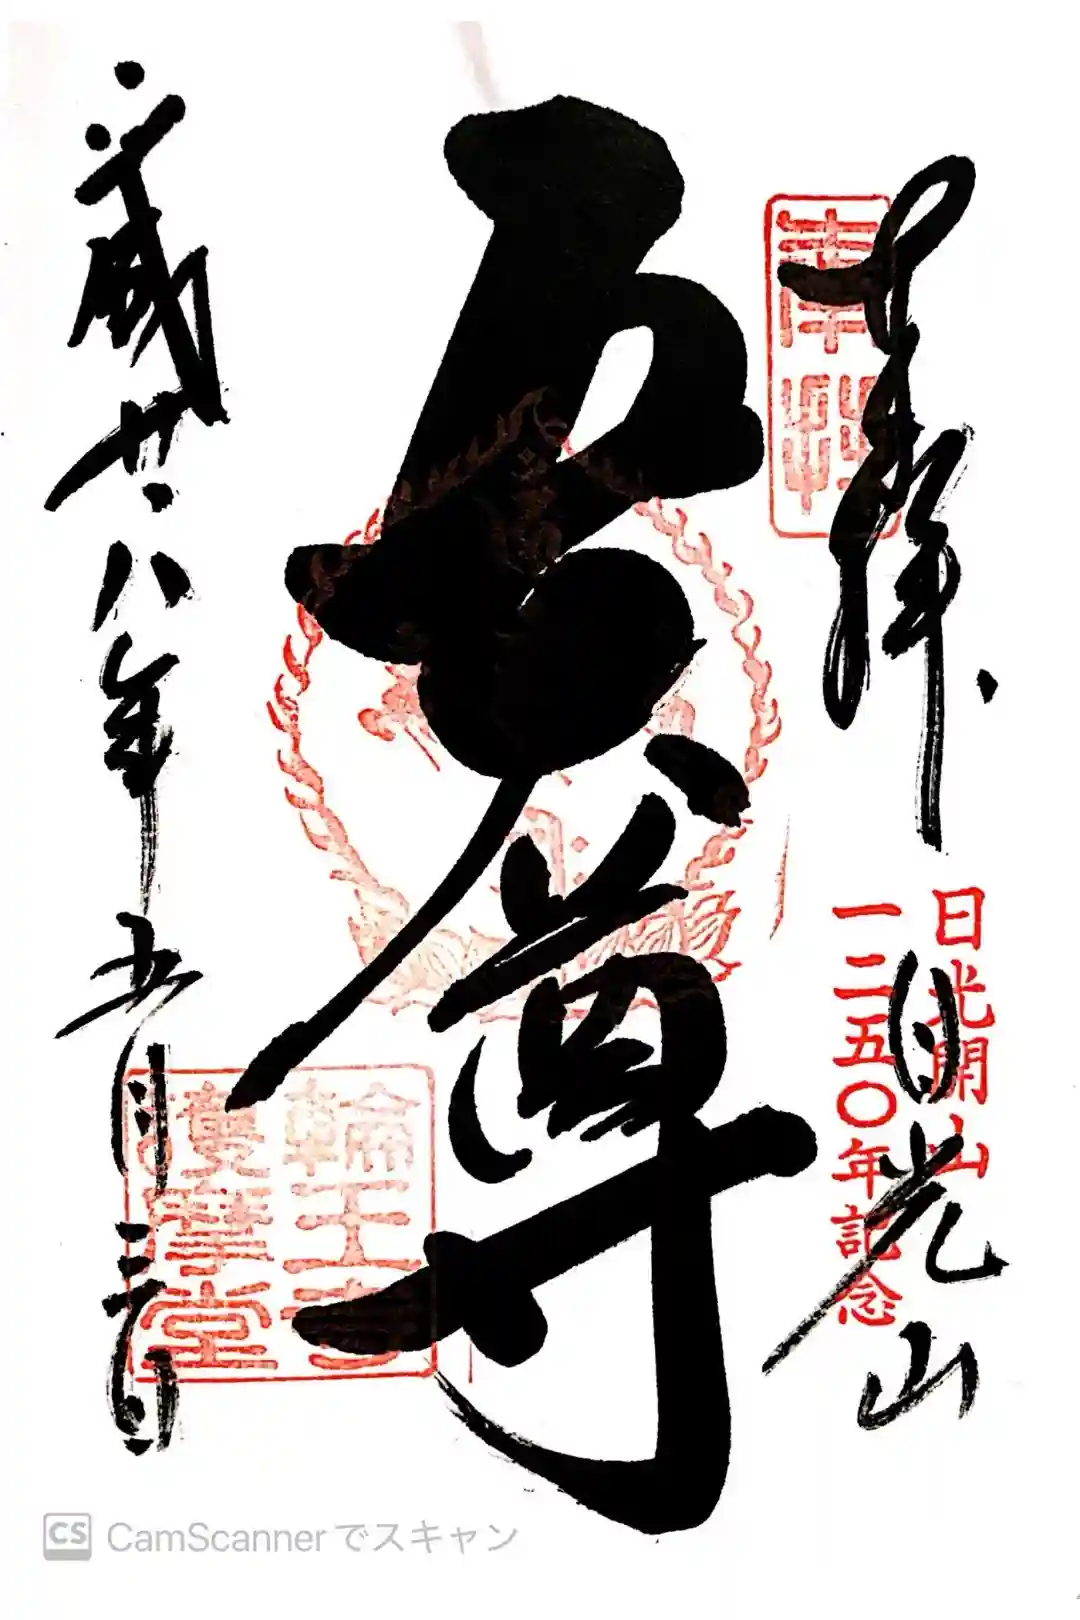 奉拝、
日光山
日光開山
一二五〇年記念
五大尊
輪王寺
護摩堂
平成廿八年五月三日
CS CamScannerでスキャン